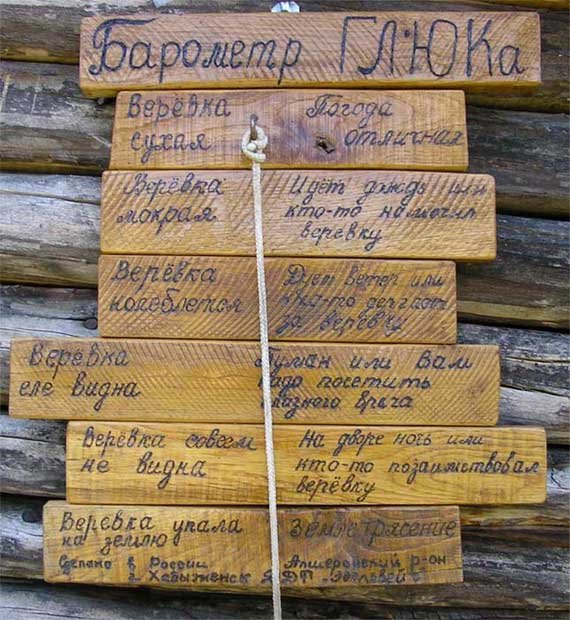 Барометр ГЛЮКа
Верёвка
сухая
Погода
отличная
Верёвка
мокрая
Идёт дождь или
кто-то намочил
веревку
Верёвка
колеблется
Дует ветер или
кто-то дёргает
за верёвку
Верёвка
еле видна
Туман или Вам
надо посетить
глазного врача
Верёвка совсем
не видна
На дворе ночь или
кто-то позаимствовал
верёвку
Верёвка упала
на землю
Землетрясение
Сделано в России
Апшеронский р-он
г. Хадыженск